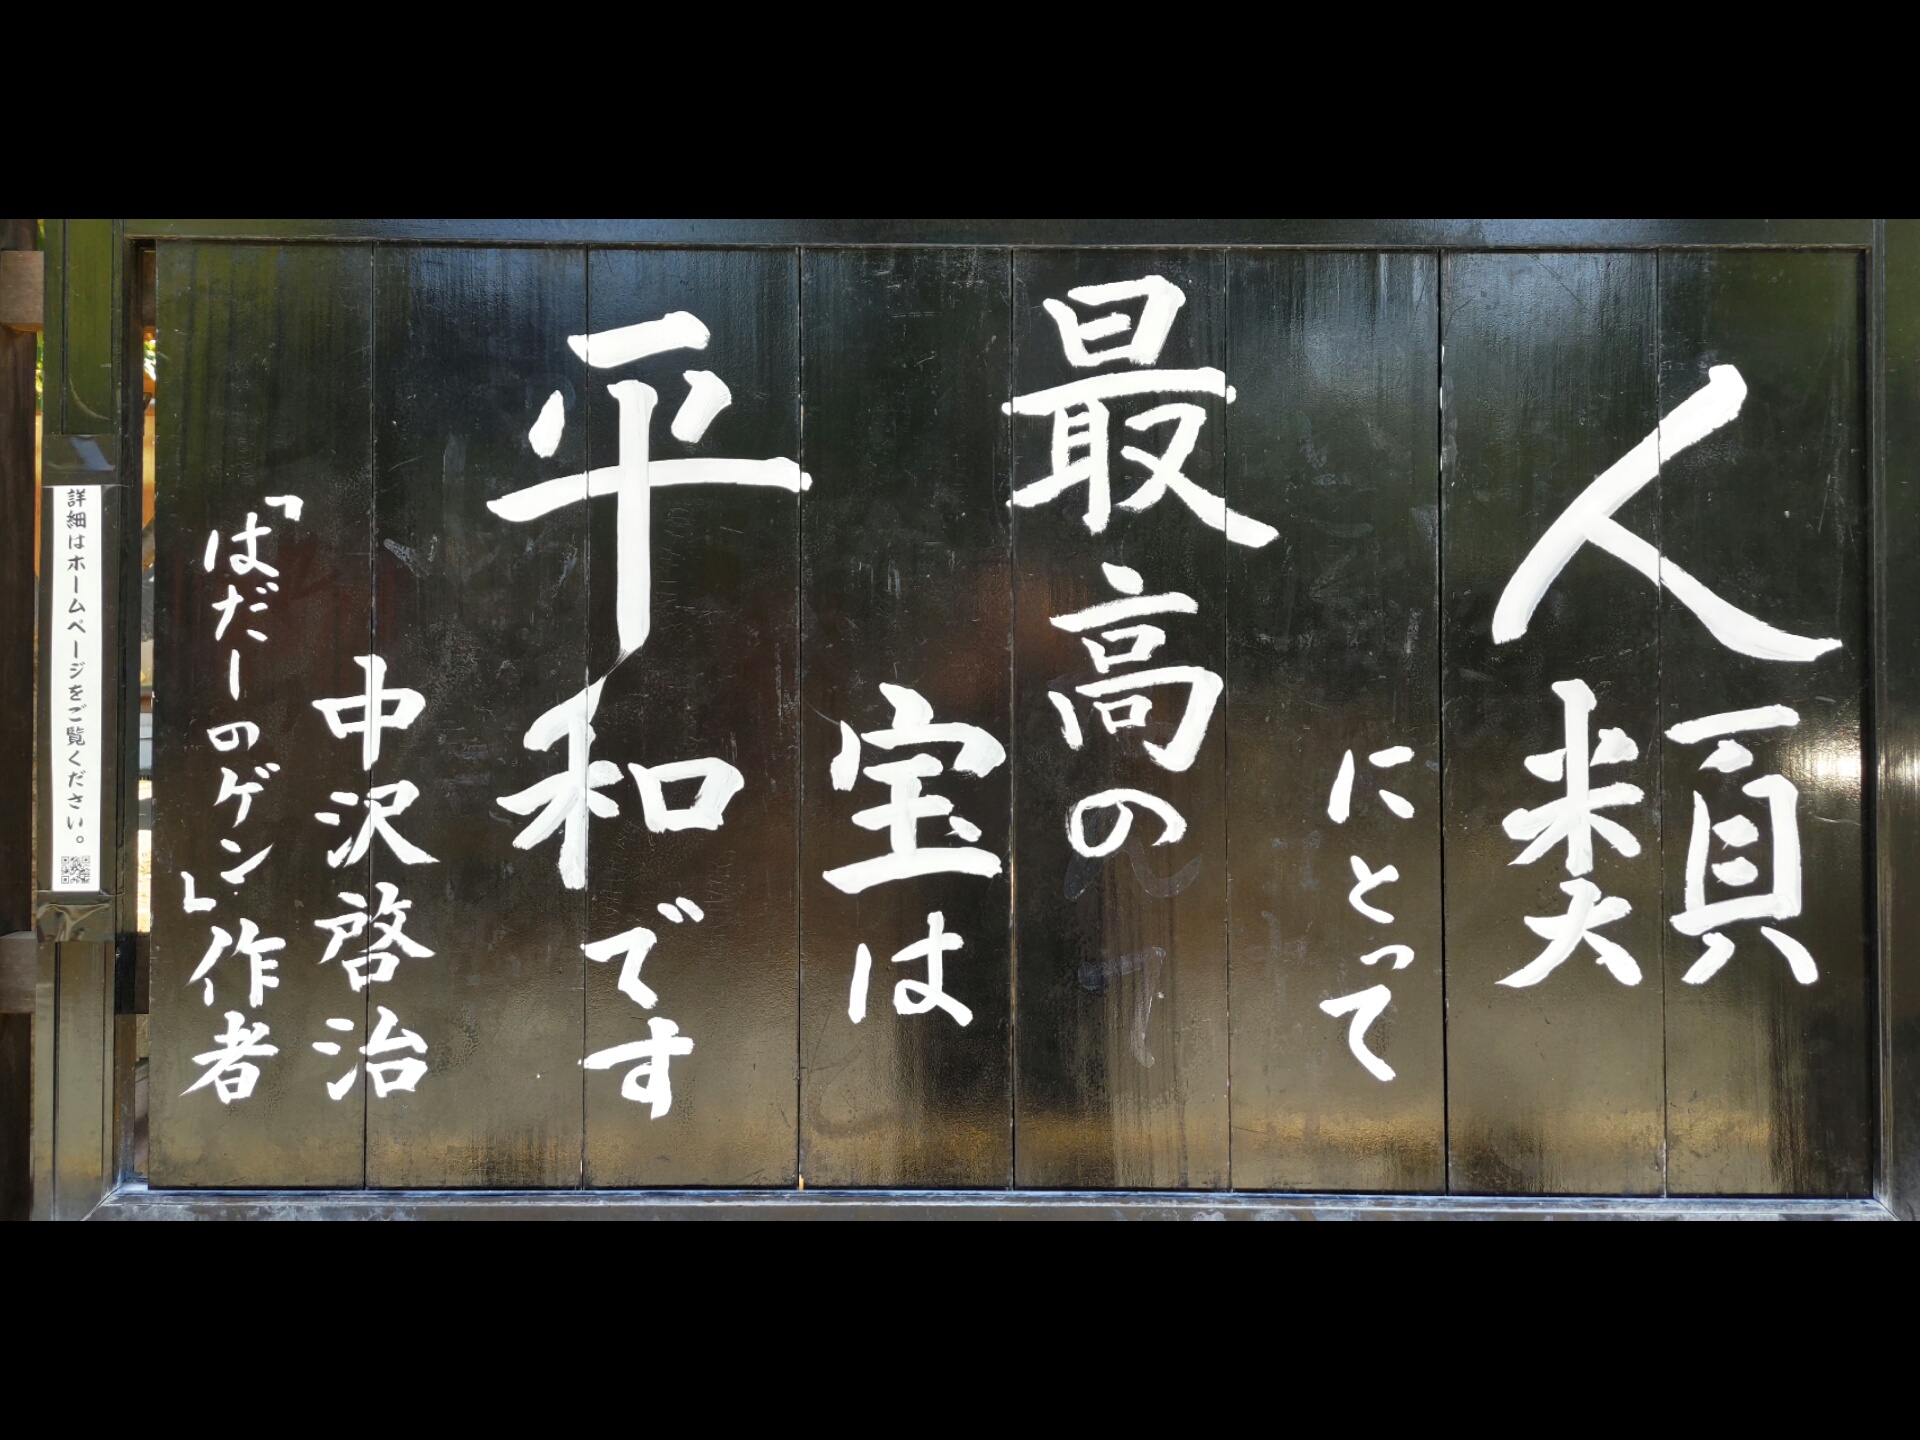 人類
にとって
最高の
宝は
平和です
中沢啓治
「はだしのゲン」作者
詳細はホームページをご覧ください。